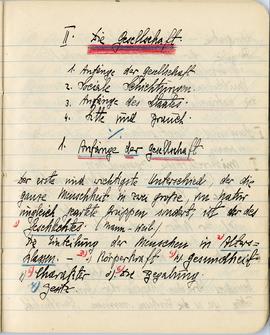 II. Die Gesellschaft
1. Anfänge der Gesellschaft
2. Soziale Schichtungen
3. Anfänge des Staates
4. Sitte und Brauch
1. Anfänge der Gesellschaft
Der erste und wichtigste Unterschied, der die
ganze Menschheit in zwei große, von Natur
ungleich geartete Gruppen sondert, ist der des
Geschlechtes (Mann - Weib)
Die Einteilung der Menschen in Alters-
klassen. - Körperkraft b) Gesundheit
c) Charakter d) die Begabung
e) Besitz